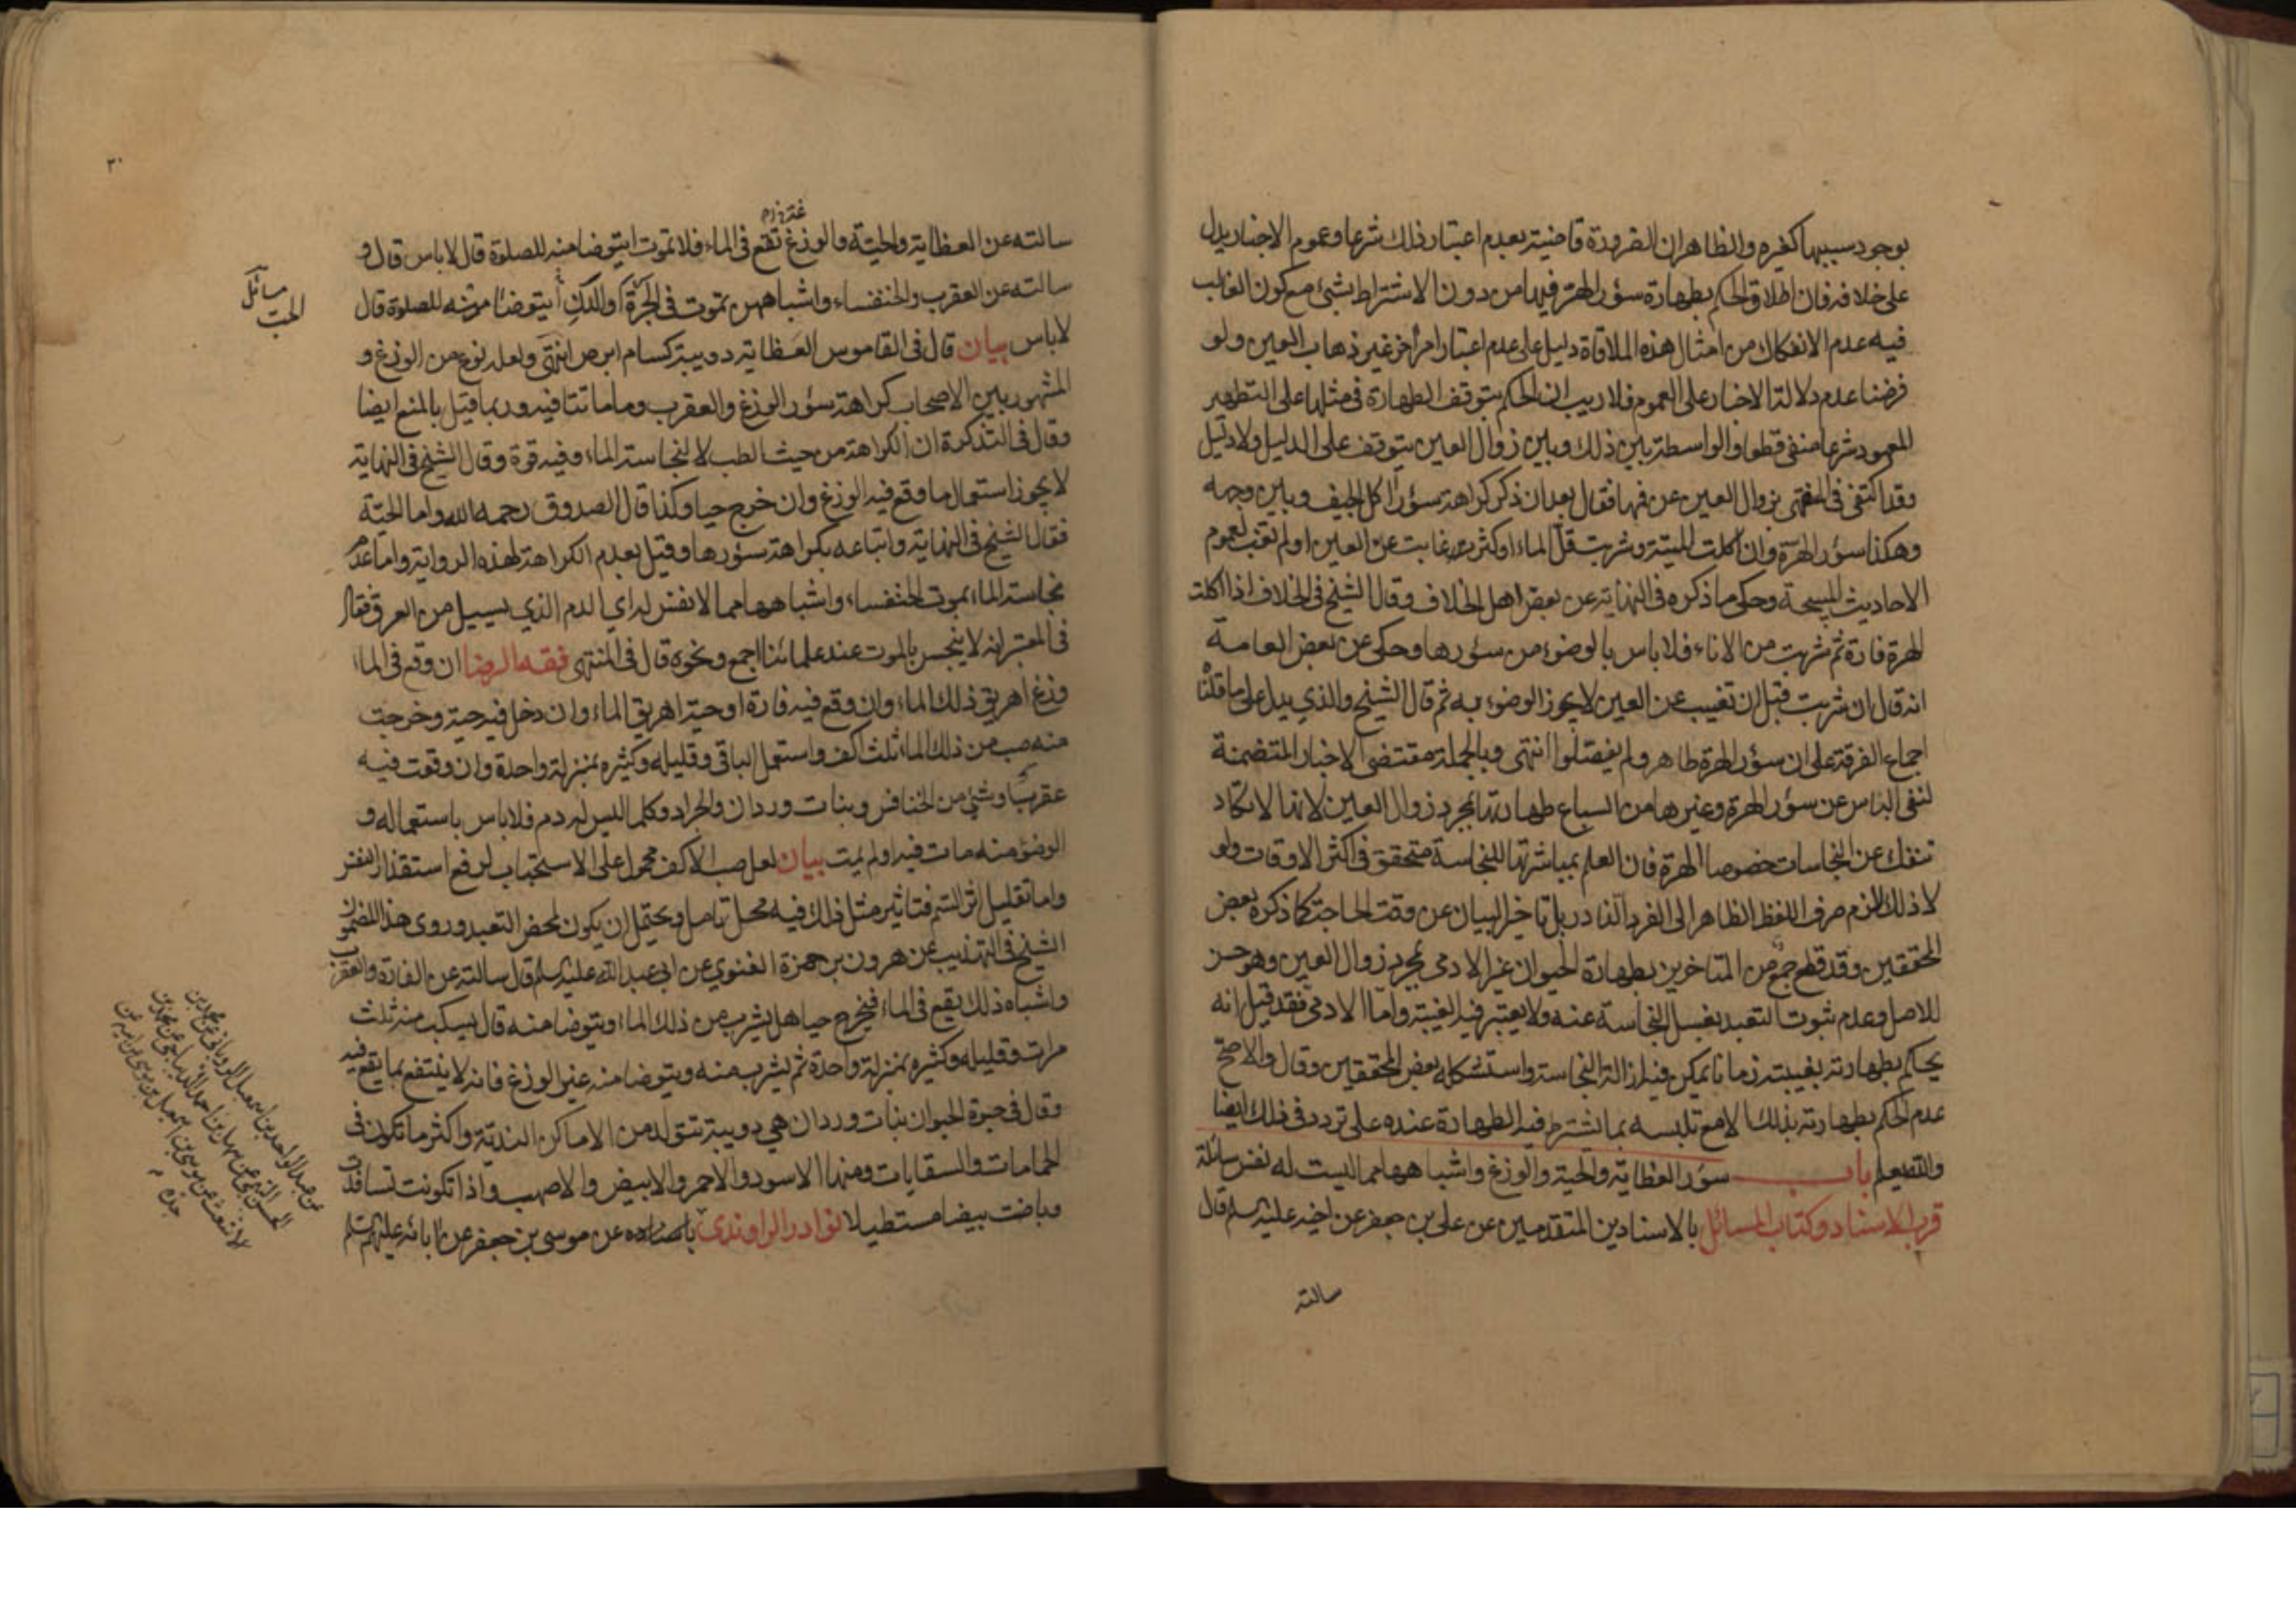 بوجود سببها كغيره والظاهر ان الضرورة قاضية بعدم اعتبار ذلك شرعا وعموم الاخبار يدل
على خلافه فان اطلاق الحكم بطهارة سؤر الهرة فيها من دون الاشتراط بشئ مع كون الغالب
فيه عدم الانفكاك من امثال هذه الملاقاة دليل على عدم اعتبار امر آخر غير ذهاب العين ولو
فرضنا عدم دلالة الاخبار على العموم فلا ريب ان الحكم بتوقف الطهارة في مثلها على التطهير
المعهود شرعا منفي قطعا والواسطة بين ذلك وبين زوال العين يتوقف على الدليل ولا دليل
وقد اكتفى في المنتهى بزوال العين عن فمها فقال بعد ان ذكر كراهة سؤر آكل الجيف وبين وجهه
وهكذا سؤر الهرة وان اكلت الميتة وشربت قل الماء او كثر غابت عن العين او لم تغب لعموم
الاحاديث المبيحة وحكى ما ذكره في النهاية عن بعض اهل الخلاف وقال الشيخ في الخلاف اذا اكلت
الهرة فارة ثم شربت من الاناء فلا باس بالوضوء من سؤرها وحكى عن بعض العامة
انه قال ان شربت قبل ان تغيب عن العين لا يجوز الوضوء به ثم قال الشيخ والذي يدل على ما قلناه
اجماع الفرقة على ان سؤر الهرة طاهر ولم يفصلوا انتهى وبالجملة مقتضى الاخبار المتضمنة
لنفى الباس عن سؤر الهرة وغيرها من السباع طهارتها بمجرد زوال العين لانها لا تكاد
تنفك عن النجاسات خصوصا الهرة فان العلم بمباشرتها للنجاسة متحقق في اكثر الاوقات ولو
لا ذلك للزم صرف اللفظ الظاهر الى الفرد النادر بل تاخير البيان عن وقت الحاجة كما ذكره بعض
المحققين وقد قطع جمع من المتاخرين بطهارة الحيوان غير الادمى بمجرد زوال العين وهو حسن
للاصل وعدم ثبوت التعبد بغسل النجاسة عنه ولا يعتبر فيه الغيبة واما الادمى فقد قيل انه
يحكم بطهارته بغيبته زمانا يمكن فيه ازالة النجاسة واستشكله بعض المحققين وقال والاصح
عدم الحكم بطهارته بذلك الا مع تلبسه بما يشترط فيه الطهارة عنده على تردد في ذلك ايضا
والله يعلم باب سؤر العظاية والحية والوزغ واشباهها مما ليست له نفس سائلة
قرب الاسناد وكتاب المسائل بالاسنادين المتقدمين عن على بن جعفر عن اخيه عليه السلم قال
سالته
٣٠
سالته عن العظاية والحية والوزغ تقع في الماء فلا تموت ايتوضا منه للصلوة قال لا باس قال و
سالته عن العقرب والخنفساء واشباههن تموت في الجرة او الدن أيتوضا منه للصلوة قال
لا باس بيان قال في القاموس العظاية دويبة كسام ابرص انتهى ولعله نوع من الوزغ و
المشهور بين الاصحاب كراهة سؤر الوزغ والعقرب وما ماتتا فيه وربما قيل بالمنع ايضا
وقال في التذكرة ان الكراهة من حيث الطب لا لنجاسة الماء وفيه قوة وقال الشيخ في النهاية
لا يجوز استعمال ما وقع فيه الوزغ وان خرج حيا وكذا قال الصدوق رحمه الله واما الحية
فقال الشيخ في النهاية واتباعه بكراهة سؤرها وقيل بعدم الكراهة لهذه الرواية واما عدم
نجاسة الماء بموت الخنفساء واشباهها مما لا نفس له اي الدم الذي يسيل من العرق فقال
في المعتبر انه لا ينجس بالموت عند علمائنا اجمع ونحوه قال في المنتهى فقه الرضا ان وقع في الماء
وزغ اهريق ذلك الماء وان وقع فيه فارة او حية اهريق الماء وان دخل فيه حية وخرجت
منه صب من ذلك الماء ثلث اكف واستعمل الباقي وقليله وكثيره بمنزلة واحدة وان وقعت فيه
عقرب او شئ من الخنافس وبنات وردان والجراد وكلما ليس له دم فلا باس باستعماله و
الوضوء منه مات فيه او لم يمت بيان لعل صب الاكف محمول على الاستحباب لرفع استقذار النفس
واما تقليل اثر السم فتاثير مثل ذلك فيه محل تامل ويحتمل ان يكون لمحض التعبد وروى هذا المضمون
الشيخ في التهذيب عن هرون بن حمزة الغنوي عن ابى عبد الله عليه السلم قال سالته عن الفارة والعقرب
واشباه ذلك يقع في الماء فيخرج حيا هل يشرب من ذلك الماء ويتوضا منه قال يسكب منه ثلث
مرات وقليله وكثيره بمنزلة واحدة ثم يشرب منه ويتوضا منه غير الوزغ فانه لا ينتفع بما يقع فيه
وقال في حيوة الحيوان بنات وردان هي دويبة تتولد من الاماكن الندية واكثر ما تكون في
الحمامات والسقايات ومنها الاسود والاحمر والابيض والاصهب واذا تكونت تسافدت
وباضت بيضا مستطيلا نوادر الراوندى باسناده عن موسى بن جعفر عن ابائه عليهم السلم
عن عبد الواحد بن اسمعيل الروياني عن محمد بن
الحسن التميمي عن سهل بن احمد الديباجي عن محمد بن
الاشعث عن موسى بن اسمعيل بن موسى عن ابيه عن
جده